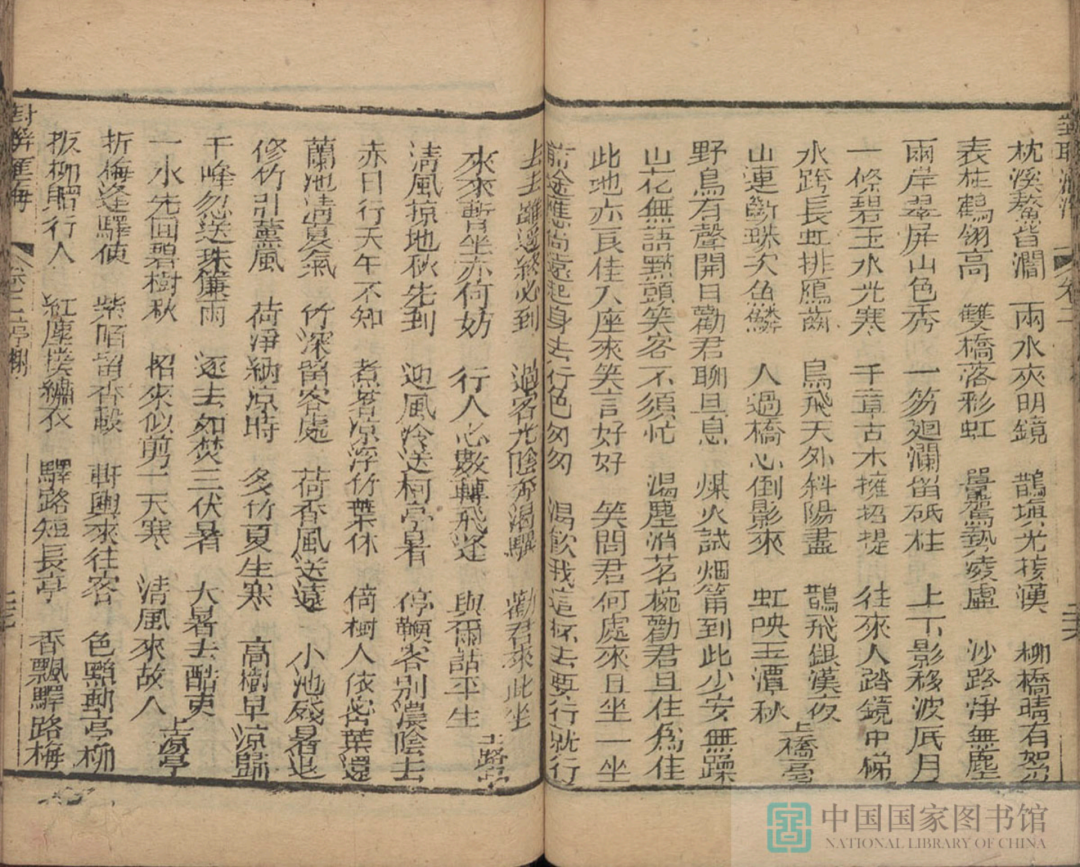 枕溪鰲背澗　兩水夾明鏡　鵲填光接漢　柳橋晴有絮
表柱鶴翎高　雙橋落彩虹　鼍駕勢凌虛　沙路淨無塵
兩岸翠屏山色秀　一笏廻瀾留砥柱　上下影移波底月
一條碧玉水光寒　千章古木擁招提　往來人踏鏡中梯
水跨長虹排鴈齒　鳥飛天外斜陽盡　鵲飛銀漢夜
山連斷珠次魚鱗　人過橋心倒影來　虹映玉潭秋　上橋臺
野鳥有聲開口勸君聊且息　煤火試烟筩到此少安無躁
山花無語點頭笑客不須忙　渴塵消茗椀勸君且住為佳
此地亦良佳入座來笑言好好　笑問君何處來且坐一坐
前途惟尚遠起身去行色匆匆　渴飲我這杯去要行就行
去去雖遙終必到　過客光陰奔渴驥　勸君來此坐
來來暫坐亦何妨　行人心數轉飛蓬　與爾話平生　上路亭
淸風掠地秋先到　迎風冷送柯亭暑　停鞭客別濃陰去
赤日行天午不知　煮暑凉浮竹葉休　倚樹人依密葉還
蘭池清夏氣　竹深留客處　荷香風送遠　小池殘暑退
修竹引薰風　荷淨納凉時　多竹夏生寒　高樹早凉歸
千峰忽送珠簾雨　逐去如焚三伏暑　大暑去酷吏
一水先回碧樹秋　招來似剪二天寒　清風來故人　上凉亭
折梅逢驛使　紫陌留香轂　斬輿來往客　色黯動亭柳
扳柳贈行人　紅塵撲繡衣　驛路短長亭　香飄驛路梅
對聯滙海　卷二
對聯匯海　卷二亭榭
中国国家图书馆
NATIONAL LIBRARY OF CHINA